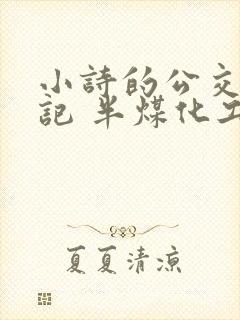 小詩的公交
記 半煤化工
夏夏清涼